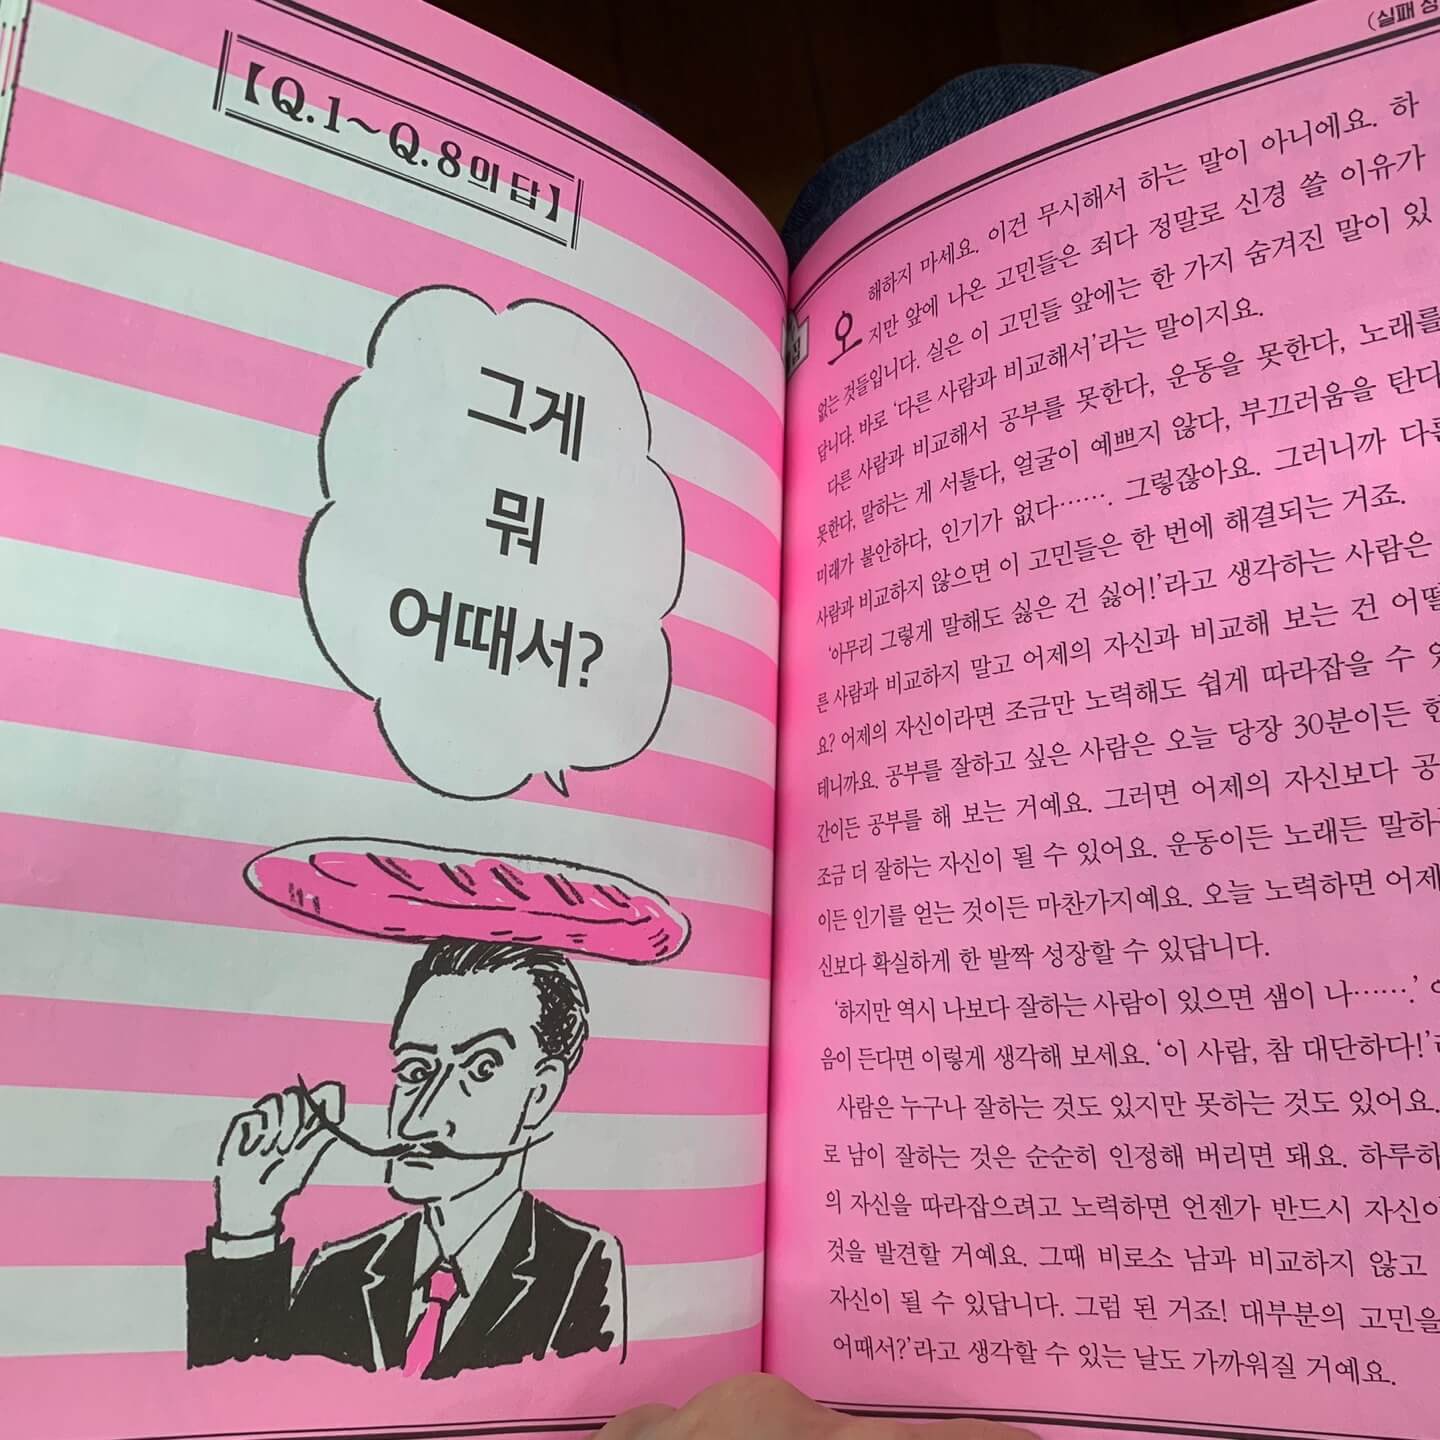 【Q.1～Q.8의 답】
그게
뭐
어때서?
(실패
오해하지 마세요. 이건 무시해서 하는 말이 아니에요. 하
지만 앞에 나온 고민들은 죄다 정말로 신경 쓸 이유가
없는 것들입니다. 실은 이 고민들 앞에는 한 가지 숨겨진 말이 있
답니다. 바로 ‘다른 사람과 비교해서’라는 말이지요.
다른 사람과 비교해서 공부를 못한다, 운동을 못한다, 노래를
못한다, 말하는 게 서툴다, 얼굴이 예쁘지 않다, 부끄러움을 탄다
미래가 불안하다, 인기가 없다……. 그렇잖아요. 그러니까 다른
사람과 비교하지 않으면 이 고민들은 한 번에 해결되는 거죠.
‘아무리 그렇게 말해도 싫은 건 싫어!’라고 생각하는 사람은
른 사람과 비교하지 말고 어제의 자신과 비교해 보는 건 어떨
요? 어제의 자신이라면 조금만 노력해도 쉽게 따라잡을 수
테니까요. 공부를 잘하고 싶은 사람은 오늘 당장 30분이든 한
간이든 공부를 해 보는 거예요. 그러면 어제의 자신보다 공
조금 더 잘하는 자신이 될 수 있어요. 운동이든 노래든 말하
이든 인기를 얻는 것이든 마찬가지예요. 오늘 노력하면 어제
신보다 확실하게 한 발짝 성장할 수 있답니다.
‘하지만 역시 나보다 잘하는 사람이 있으면 샘이 나…….’
음이 든다면 이렇게 생각해 보세요. ‘이 사람, 참 대단하다!’
사람은 누구나 잘하는 것도 있지만 못하는 것도 있어요.
로 남이 잘하는 것은 순순히 인정해 버리면 돼요. 하루하
의 자신을 따라잡으려고 노력하면 언젠가 반드시 자신
것을 발견할 거예요. 그때 비로소 남과 비교하지 않고
자신이 될 수 있답니다. 그럼 된 거죠! 대부분의 고민을
어때서?’라고 생각할 수 있는 날도 가까워질 거예요.